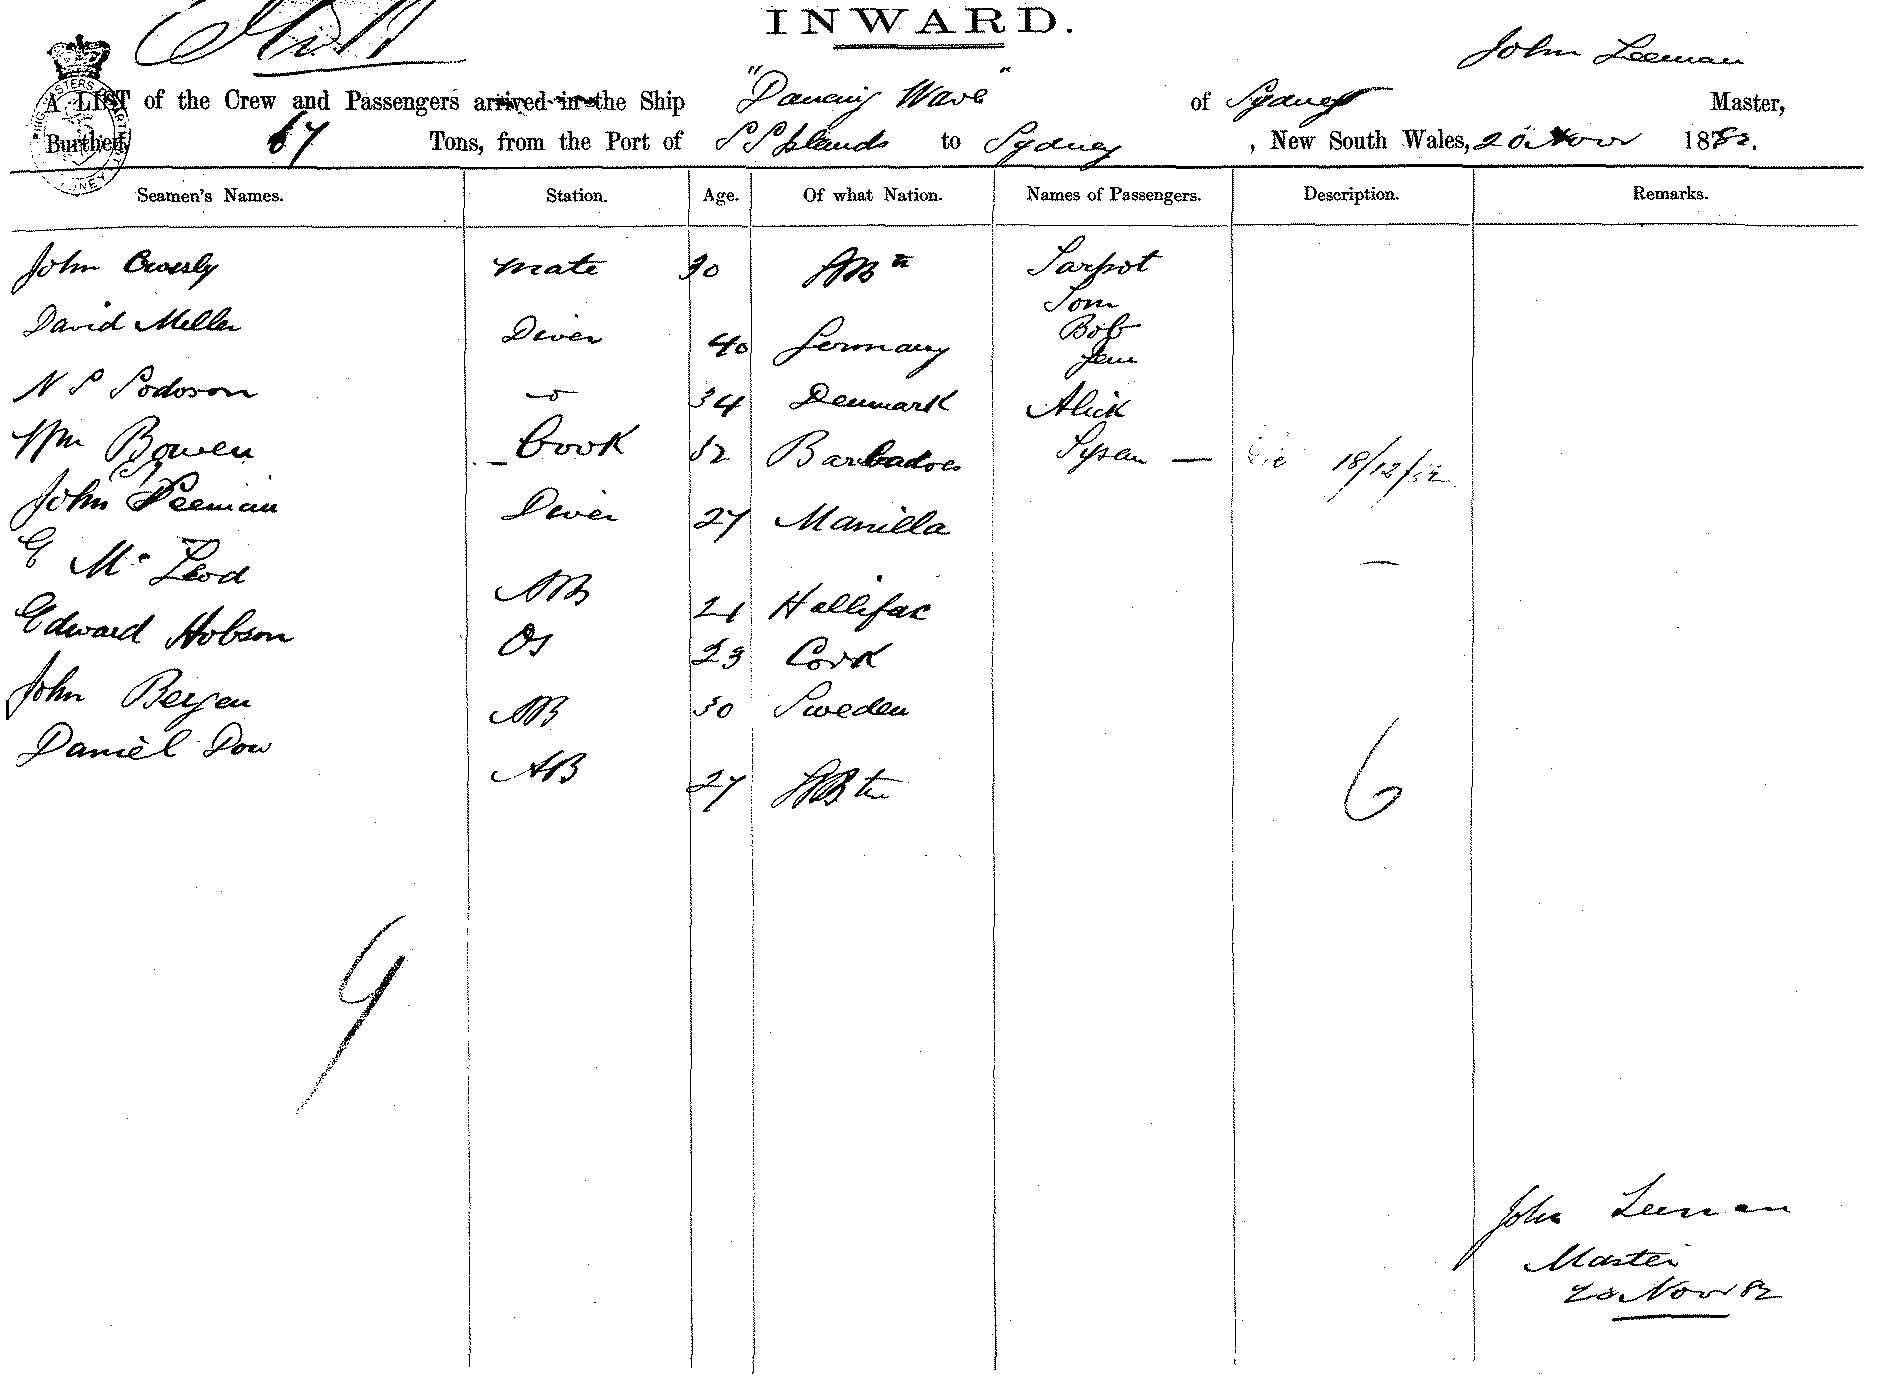 INWARD.
John Leeman
A LIST of the Crew and Passengers arrived in the Ship "Dancing Wave" of Sydney Master,
Burthen, 67 Tons, from the Port of S S Islands to Sydney , New South Wales, 20 Novr 1882.
Seamen's Names. Station. Age. Of what Nation. Names of Passengers. Description. Remarks.
John mate 30 Sarpot
Tom
David Miller Diver 40 Germany Bob
Jem
N P Sodoson 34 Denmark Alick
Wm Bowen Cook 52 Barbadoes — 18/12/82
John Diver 27 Manilla
E Mc Leod AB 21 Hallifax —
Edward Hobson OS 23 Cork
John Bergen AB 30 Sweden
Daniel Dow AB 27
6
9
John Leeman
Master
20 Novr 82